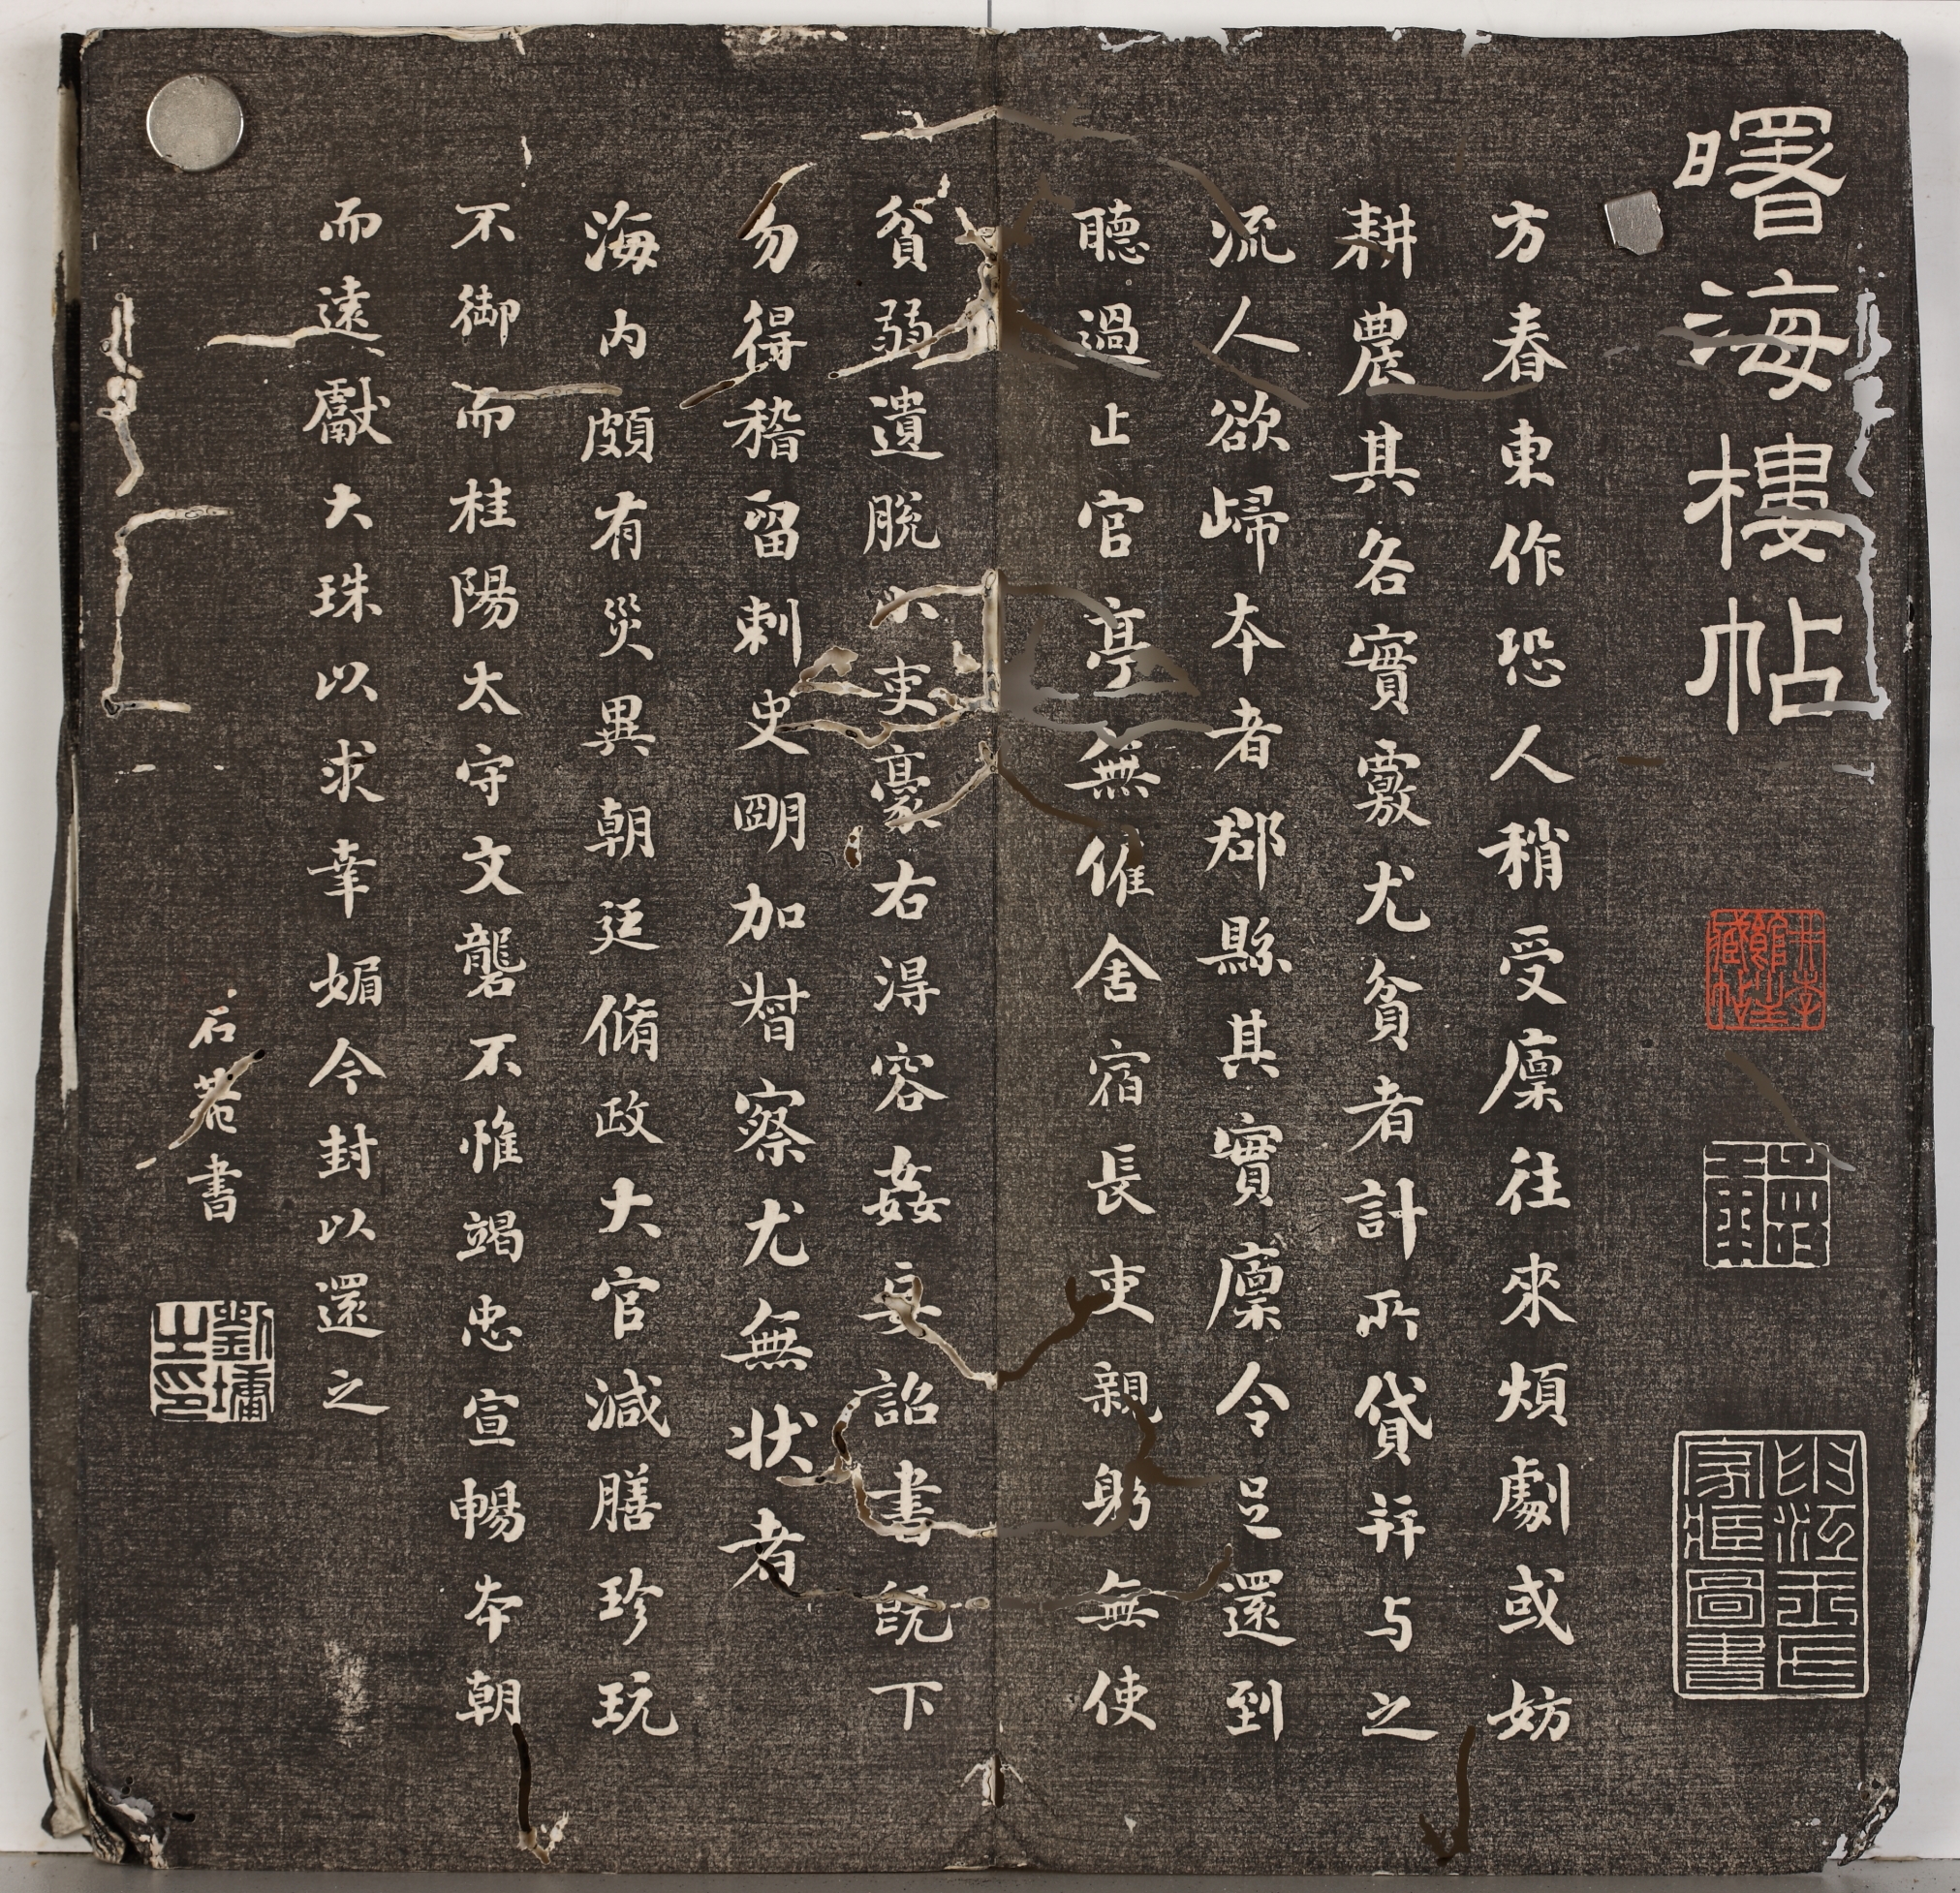 曙海樓帖
方春東作恐人稍受廩往來煩劇或妨
耕農其各實覈尤貧者計所貸并与之
流人欲歸本者郡縣其實廩令足還到
聽過止官亭無雇舍宿長吏親躬無使
貧弱遺脫小吏豪右得容姦妄詔書既下
勿得稽留刺史明加督察尤無状者
海内頗有災異朝廷脩政大官減膳珍玩
不御而桂陽太守文礱不惟竭忠宣暢本朝
而遠獻大珠以求幸媚今封以還之
石菴書
劉墉之印